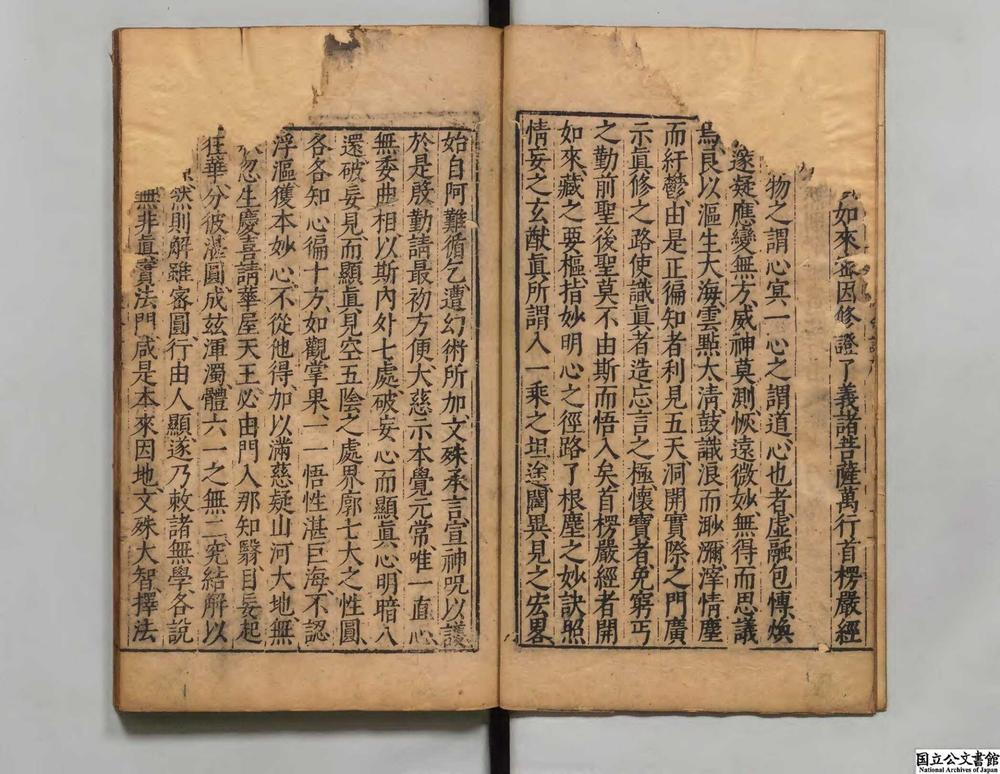 如來密因修證了義諸菩薩萬行首楞嚴經
物之謂心冥一心之謂道心也者虛融包博煥
邃疑應變無方威神莫測恢遠微妙無得而思議
焉良以漚生大海雲點太淸鼓識浪而渺瀰滓情塵
而紆鬱由是正徧知者利見五天洞開實際之門廣
示眞修之路使識眞者造忘言之極懷寶者免窮丐
之勤前聖後聖莫不由斯而悟入矣首楞嚴經者開
如來藏之要樞指妙明心之徑路了根塵之妙訣照
情妄之玄猷眞所謂入一乘之坦途闢異見之宏畧
始自阿難循乞遭幻術所加文殊承言宣神呪以護
於是殷勤請最初方便大慈示本覺元常唯一直心
無委曲相以斯內外七處破妄心而顯眞心明暗八
還破妄見而顯眞見空五陰之處界廓七大之性圓
各各知心徧十方如觀掌果一一悟性湛巨海不認
浮漚獲本妙心不從他得加以滿慈疑山河大地無
忽生慶喜請華屋天王必由門入那知翳目妄起
狂華分彼湛圓成玆渾濁體六一之無二究結解以
然則解雖密圓行由人顯遂乃敕諸無學各說
無非眞實法門咸是本來因地文殊大智擇法
国立公文書館
National Archives of Japan